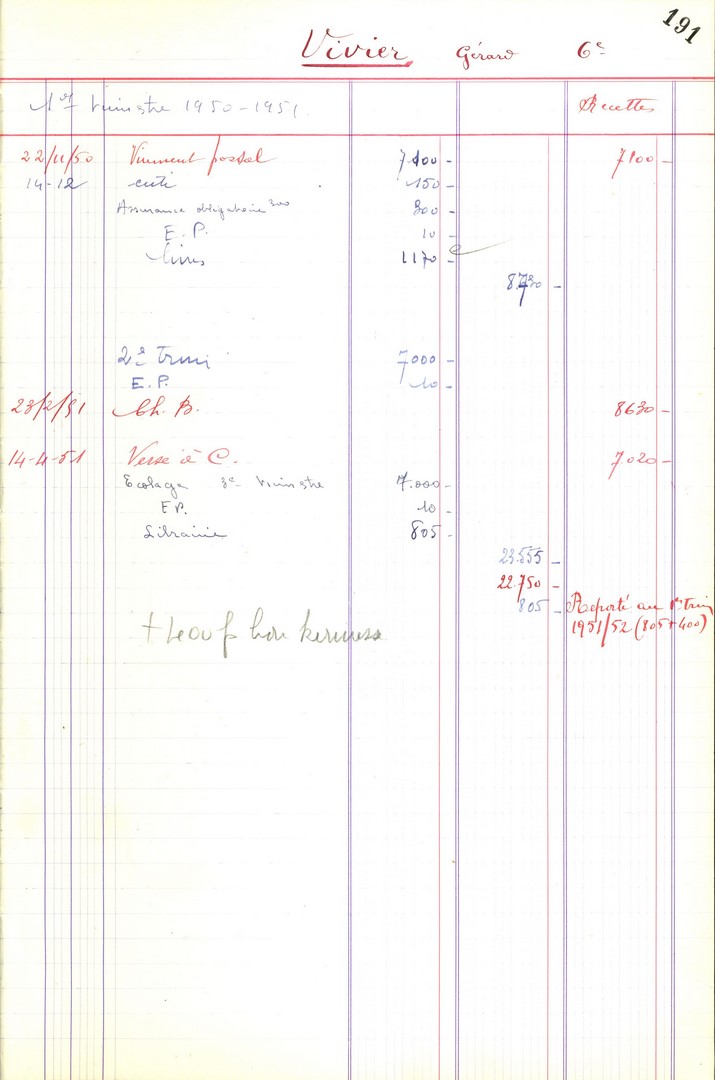 191
Vivier Gérard 6e
1er trimestre 1950-1951 Recettes
22/11/50 Virement postal 7100 - 7100 -
14-12 150 -
Assurance obligatoire 300 300 -
E.P. 10 -
livres 1170 -
8730 -
2e Trim 7000 -
E.P. 10 -
23/2/51 Ch. B. 8630 -
14-4-51 Verse à C. 7020 -
Ecolage 3e trimestre 7.000 -
EP. 10 -
Librairie 805 -
23.555 -
22.750 -
805 - Reporté au 1er trim
1951/52 (805+400)
+ 400 f bon kermesse